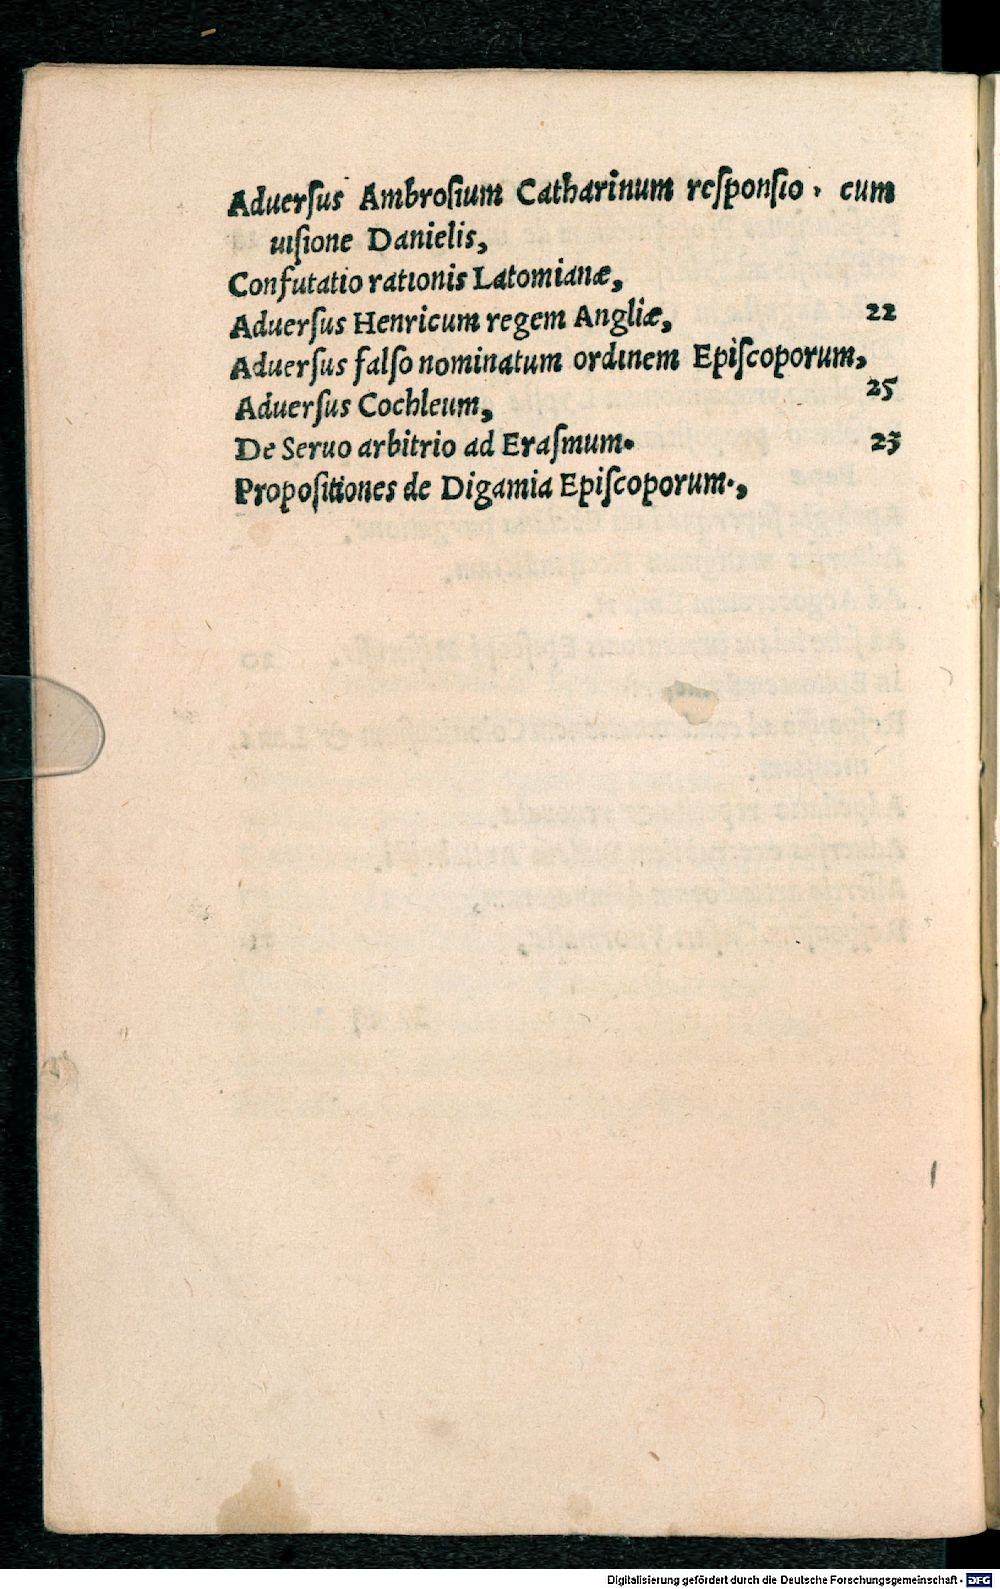 Aduerſus Ambroſium Catharinum reſponſio · cum
uiſione Danielis,
Confutatio rationis Latomianæ,
Aduerſus Henricum regem Angliæ, 22
Aduerſus falſo nominatum ordinem Epiſcoporum,
Aduerſus Cochleum, 25
De Seruo arbitrio ad Eraſmum. 23
Propoſitiones de Digamia Epiſcoporum.,
Digitalisierung gefördert durch die Deutsche Forschungsgemeinschaft - DFG